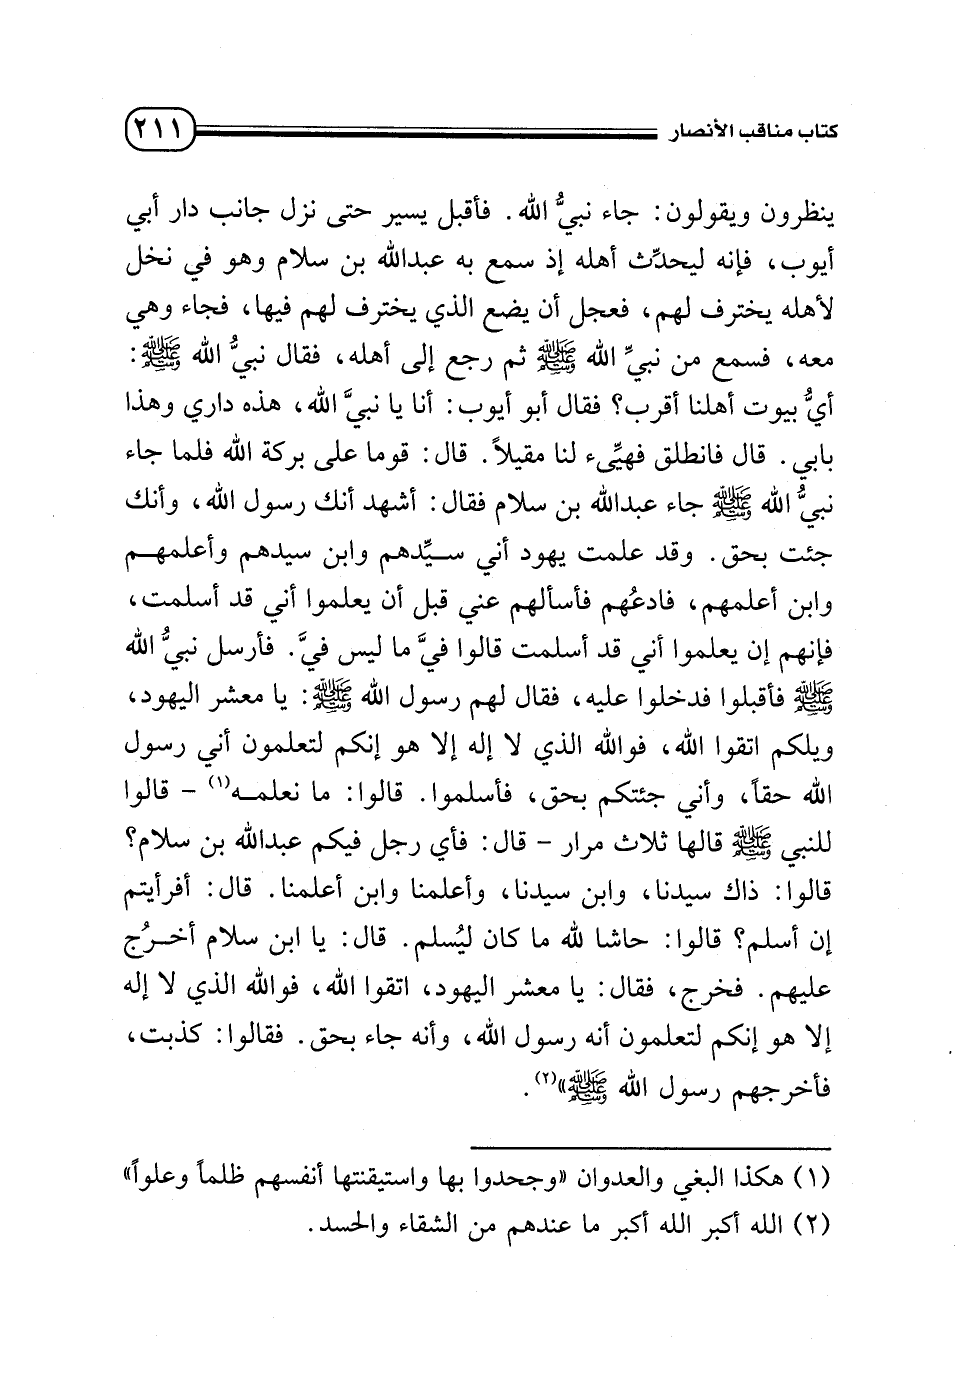 كتاب مناقب الأنصار ٢١١
ينظرون ويقولون: جاء نبيُّ الله. فأقبل يسير حتى نزل جانب دار أبي
أيوب، فإنه ليحدِّث أهله إذ سمع به عبدالله بن سلام وهو في نخل
لأهله يخترف لهم، فعجل أن يضع الذي يخترف لهم فيها، فجاء وهي
معه، فسمع من نبيِّ الله ﷺ ثم رجع إلى أهله، فقال نبيُّ الله ﷺ:
أيُّ بيوت أهلنا أقرب؟ فقال أبو أيوب: أنا يا نبيَّ الله، هذه داري وهذا
بابي. قال فانطلق فهيِّىء لنا مقيلاً. قال: قوما على بركة الله فلما جاء
نبيُّ الله ﷺ جاء عبدالله بن سلام فقال: أشهد أنك رسول الله، وأنك
جئت بحق. وقد علمت يهود أني سيِّدهم وابن سيدهم وأعلمهم
وابن أعلمهم، فادعُهم فأسألهم عني قبل أن يعلموا أني قد أسلمت،
فإنهم إن يعلموا أني قد أسلمت قالوا فيَّ ما ليس فيَّ. فأرسل نبيُّ الله
ﷺ فأقبلوا فدخلوا عليه، فقال لهم رسول الله ﷺ: يا معشر اليهود،
ويلكم اتقوا الله، فوالله الذي لا إله إلا هو إنكم لتعلمون أني رسول
الله حقاً، وأني جئتكم بحق، فأسلموا. قالوا: ما نعلمه(١) - قالوا
للنبي ﷺ قالها ثلاث مرار - قال: فأي رجل فيكم عبدالله بن سلام؟
قالوا: ذاك سيدنا، وابن سيدنا، وأعلمنا وابن أعلمنا. قال: أفرأيتم
إن أسلم؟ قالوا: حاشا لله ما كان ليُسلم. قال: يا ابن سلام أخرُج
عليهم. فخرج، فقال: يا معشر اليهود، اتقوا الله، فوالله الذي لا إله
إلا هو إنكم لتعلمون أنه رسول الله، وأنه جاء بحق. فقالوا: كذبت،
فأخرجهم رسول الله ﷺ»(٢).
(١) هكذا البغي والعدوان «وجحدوا بها واستيقنتها أنفسهم ظلماً وعلواً»
(٢) الله أكبر الله أكبر ما عندهم من الشقاء والحسد.